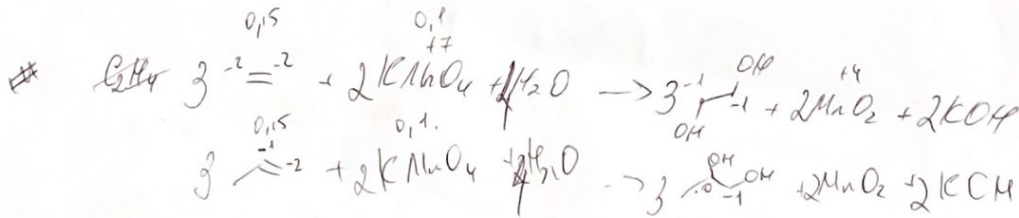 0,15 0,1
C₂H₄ 3 -2 = -2 + 2KMnO₄ +7 + 4H₂O → 3 -1 OH OH -1 + 2MnO₂ +4 + 2KOH
0,15 0,1.
3 -1 = -2 + 2KMnO₄ + 4H₂O → 3 OH 0 OH -1 + 2MnO₂ + 2KOH